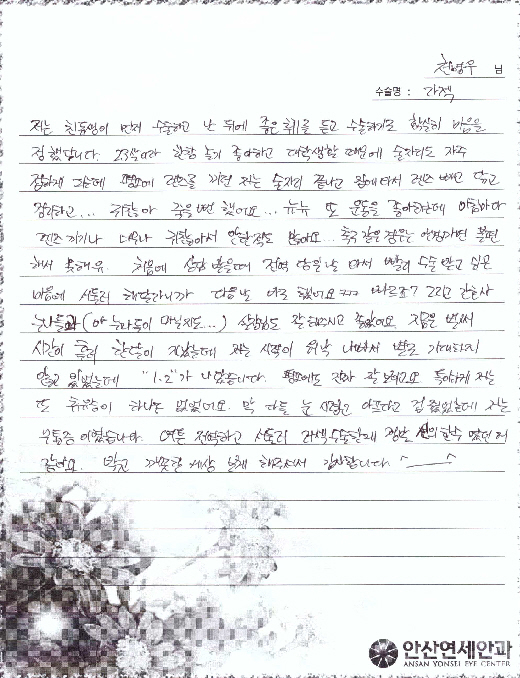 천명우 님
수술명 : 라젝
저는 친동생이 먼저 수술하고 난 뒤에 좋은 후기를 듣고 수술하기로 확실히 마음을
정했답니다. 23살이라 한참 놀기 좋아하고 대학생활 때문에 술자리도 자주
렌즈를 끼던 저는 술자리 끝나고 집에 와서 렌즈 빼고 닦고
정리하고... 귀찮아 죽을뻔 했어요... ㅠㅠ 또 운동을 좋아하는데 아침마다
렌즈 끼기나 귀찮아서 안한적도 많아요... 축구 같은 경우는 안경끼면 불편
해서 못해요. 처음에 상담 받을때 전역 당일날 와서 빨리 수술 받고 싶은
마음에 서둘러 해달라니까 다음날 바로 했어요 ㅋㅋㅋ 빠르죠? 그리고 간호사
누나들과 (아 누나들이 아닐지도...) 상담도 잘 해주시고 좋았어요 지금은 벌써
시간이 흘러 한달이 지났는데 저는 시력이 워낙 나빠서 별로 기대하지
않고 있었는데 "1.2"가 나왔습니다. 밤에도 진짜 잘 보여요 특이하게 저는
또 하나도 없었어요. 막 다들 눈 시리고 아프다고 겁 줬었는데 저는
무통증 이였습니다. 여튼 전역하고 서둘러 라섹수술한게 정말 신의 한수 였던 거
같아요. 밝고 깨끗한 세상 보게 해주셔서 감사합니다. ^____^
안산연세안과
ANSAN YONSEI EYE CENTER